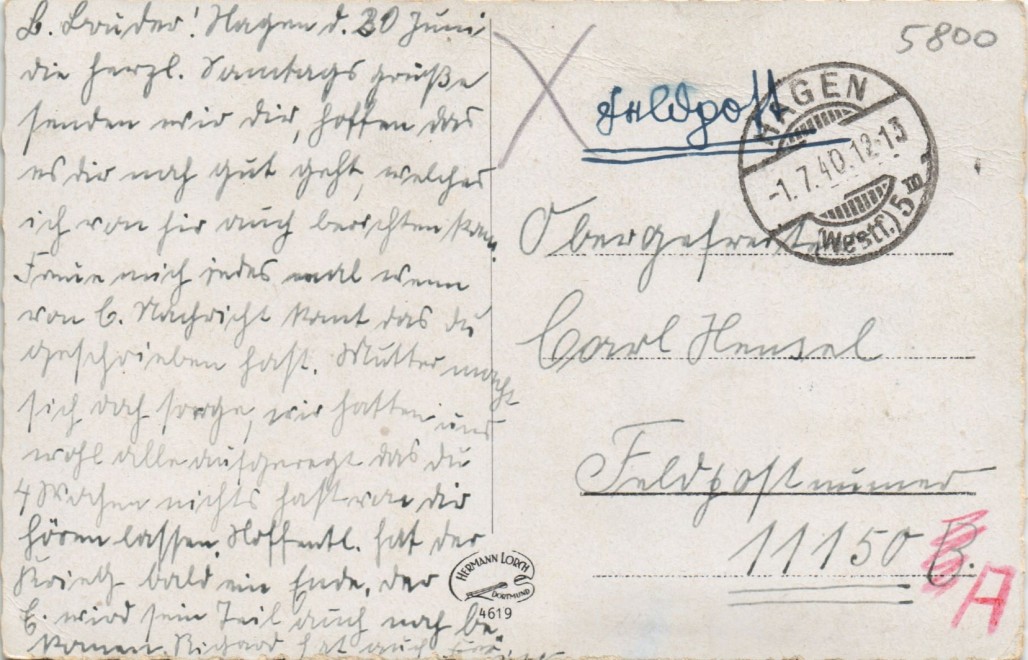 L. Bruder! Hagen d. 30 Juni
die herzl. Sonntags grüße
senden wir dir, hoffen das
es dir noch gut geht, welches
ich von hir auch berichten kann.
Freue mich jedes mal wenn
von C. Nachricht komt das du
geschrieben hast. Mutter macht
sich doch sorge, wir hatten uns
wohl alle aufgeregt das du
4 Wochen nichts hast von dir
hören lassen. Hoffentl. hat der
Krieg bald ein Ende, der
E. wird sein Teil auch noch be-
komen. Rigard hat auch
5800
Feldpost
HAGEN
-1.7.40.12-13
(Westf.) 5 m
Obergefreiter
Carl Hensel
Feldpostnumer
11150 B.
A
HERMANN LORCH
DORTMUND
4619